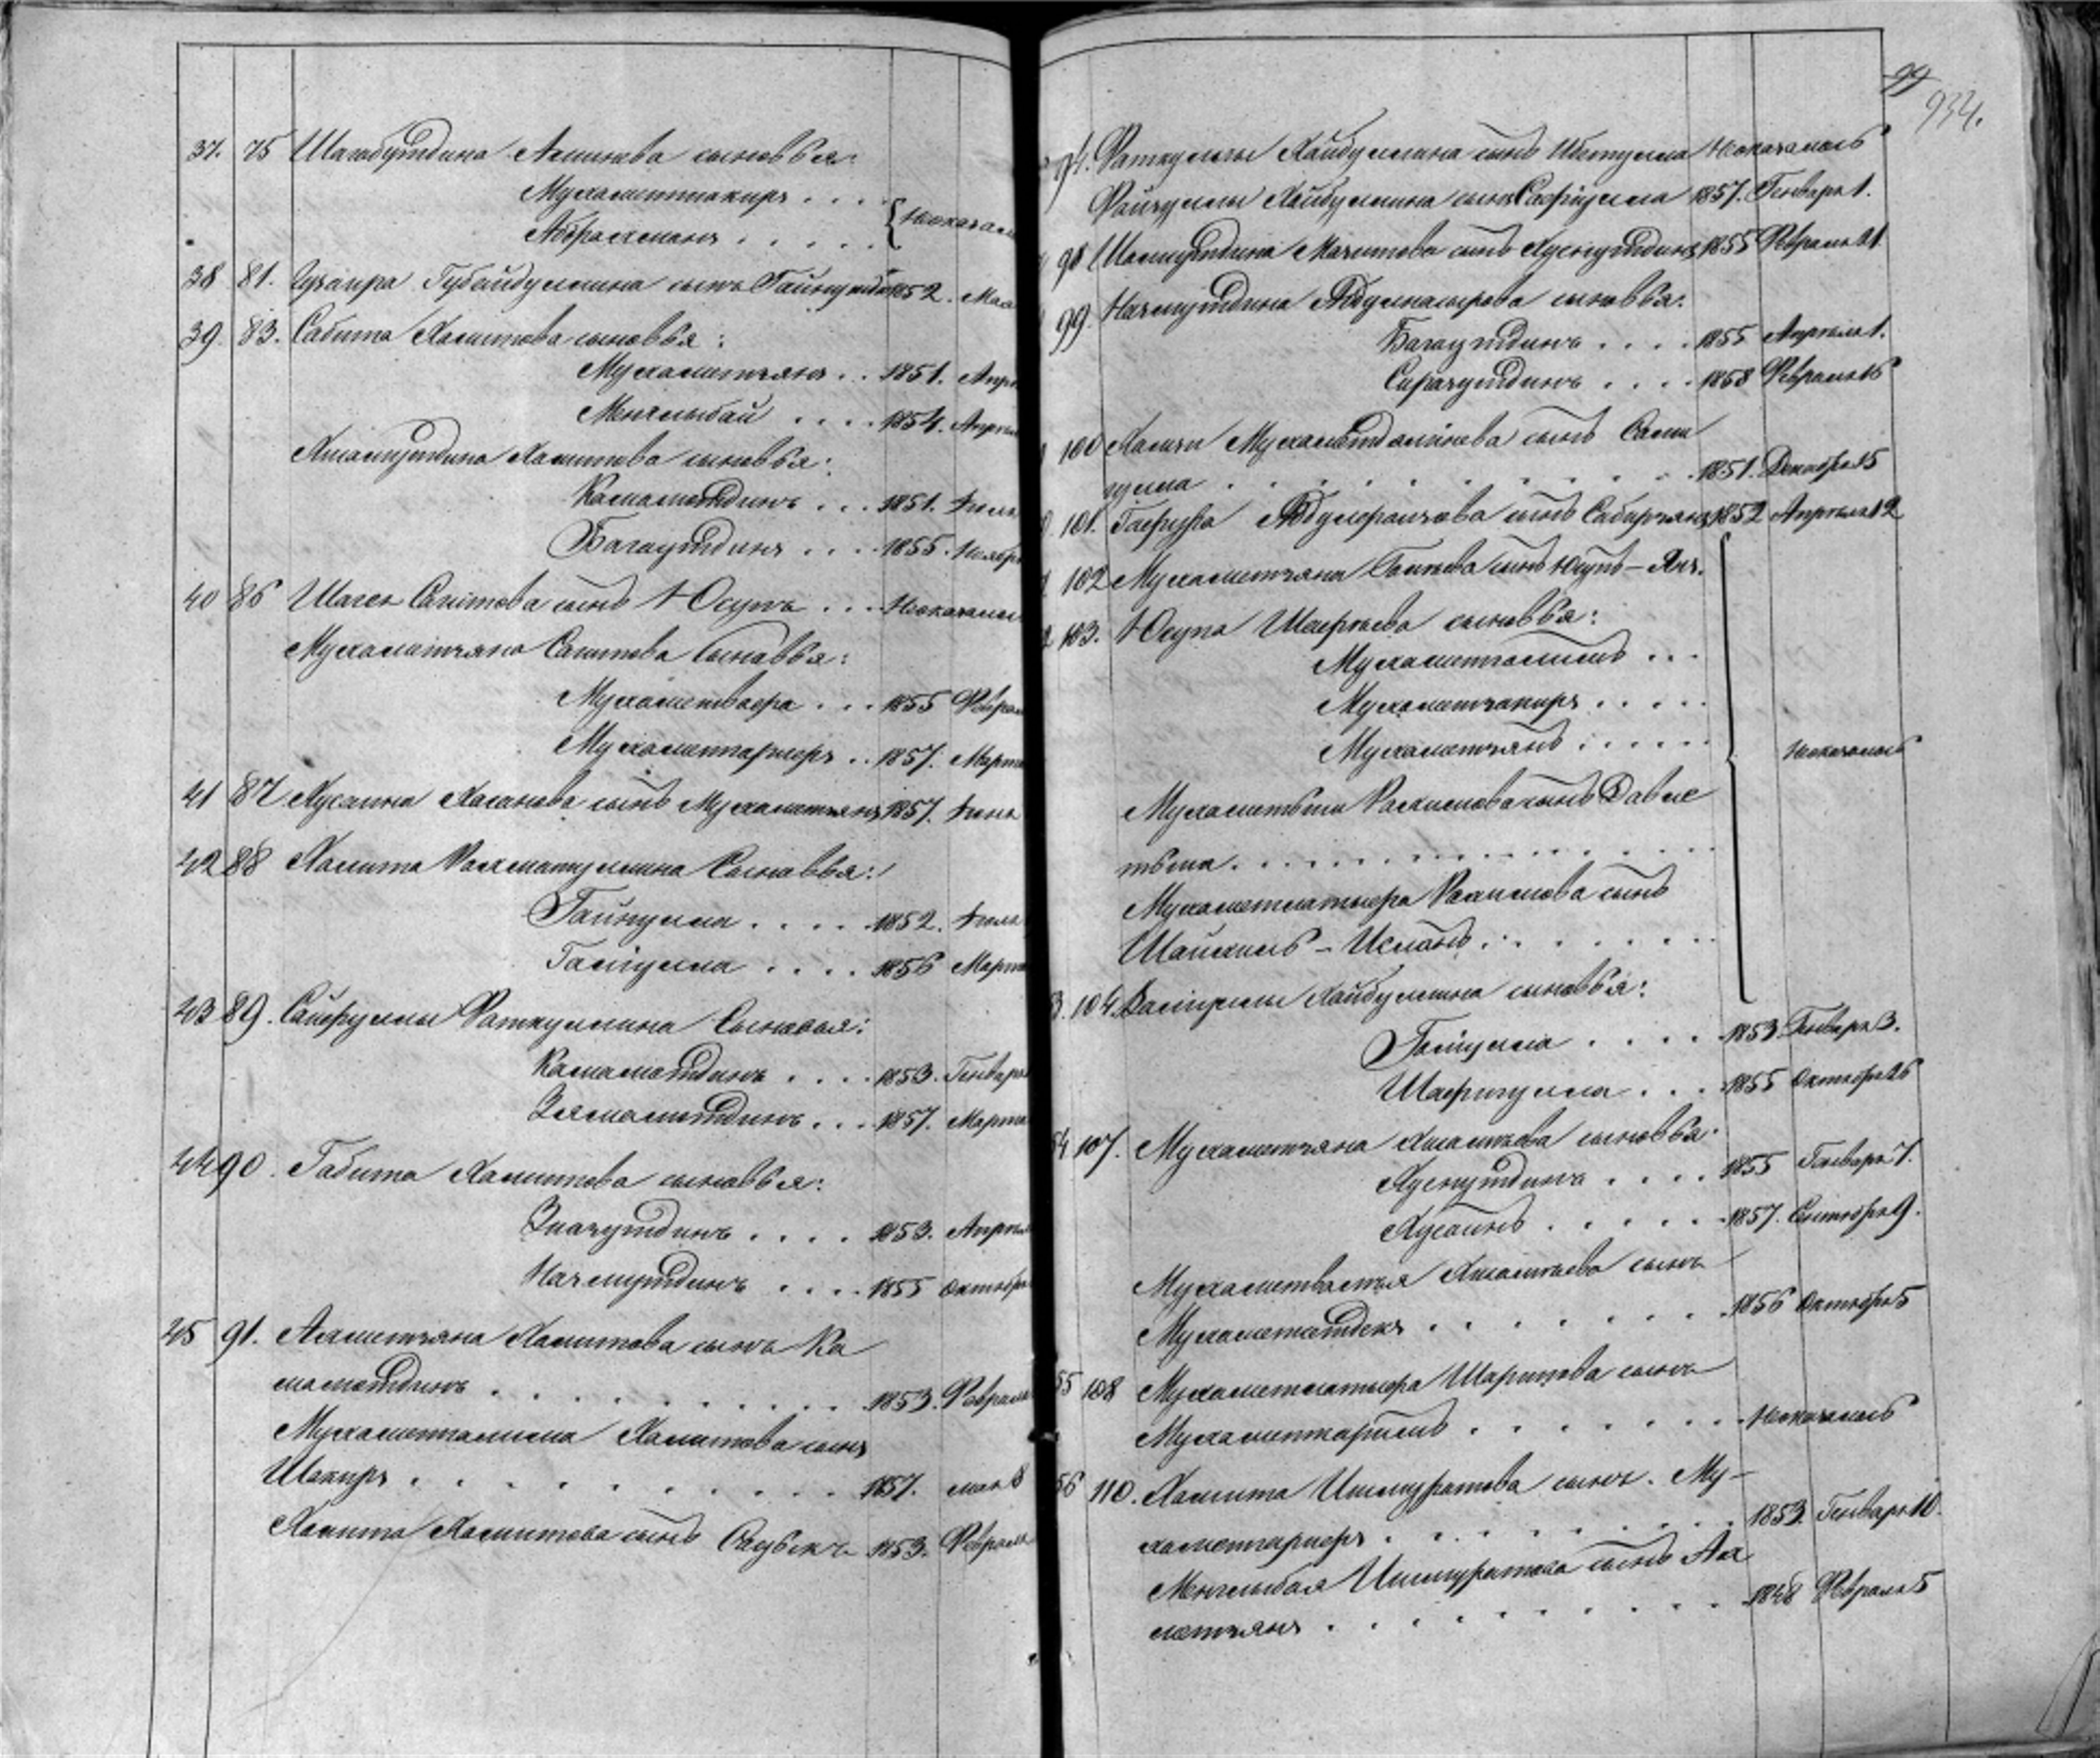 37. 75 Шагабутдина Аминева сыновья:
Мухаметшакиръ . . . .
Абдрахманъ . . . . . { Непоказанъ
38 81. Губайдуллина сынъ Гайнутдинъ 1852. Мая
39 83. Сабита Хамитова сыновья:
Мухаметчанъ . . 1851. Апр
Минлыбай . . . . 1854. Апрѣл
Хисамутдина Хамитова сыновья:
Камалетдинъ . . . 1851. Іюль
Багаутдинъ . . . . 1855. Ноябр
40 86 Шагея Сагитова сынъ Юсупъ . . . Непоказанъ
Мухаметчана Сагитова сыновья:
Мухаметвафа . . . 1855 Феврал
Мухаметгарифъ . . 1857. Марта
41 87 Хусаина Хасанова сынъ Мухаметчанъ 1857. Іюня
42 88 Хамита Рахматуллина сыновья:
Гайнулла . . . . . 1852. Іюль
Галіулла . . . . 1856 Марта
43 89. Сайфуллы Фаткуллина сыновья:
Камалетдинъ . . . . 1853. Генвар
Зямалетдинъ . . . 1857. Марта
44 90. Габита Хамитова сыновья:
Зиазутдинъ . . . . 1853. Апрѣл
Назмутдинъ . . . . 1855 Октябр
45 91. Ахметчана Хамитова сынъ Ка
малетдинъ . . . . . . . . . . 1853. Феврал
Мухаметгалима Хамитова сынъ
Шакиръ . . . . . . . . . . . 1857. мая 8
Хамита Хамитова сынъ 1853. Феврал
99
934.
94. Фаткуллы Хайбуллина сынъ Ибетулла Непоказанъ
Файзуллы Хайбуллина сынъ Сафіулла 1857. Генваря 1.
98 Шамсутдина Мазитова сынъ Хуснутдинъ 1855 Февраля 21.
99. Назмутдина Абдулнасырова сыновья:
Багаутдинъ . . . . 1855 Апрѣля 1.
Сиразутдинъ . . . . 1858 Февраля 16
100 сынъ Сами
гулла . . . . . . . . . . 1851. Декабря 15
101. сынъ Сабирчанъ 1852 Апрѣля 12
102 Мухаметчана Галіева сынъ Юсупъ – Янъ.
103. Юсупа Шафѣева сыновья:
Мухаметгалимъ . . .
Мухаметзакиръ . . . . .
Мухаметчанъ . . . . . .
Непоказанъ
Мухаметьша Рахимова сынъ Давле
тьша . . . . . . . . . . . . . .
Мухаметлатыфа Рахимова сынъ
Шаихилъ – Исламъ . . . . . . .
104. Валіуллы Хайбуллина сыновья:
Галіулла . . . . . 1853. Генваря 3.
Шафигулла . . . 1855 Октября 26
54 107. Мухаметчана Хисамова сыновья:
Хуснутдинъ . . . . 1855 Генваря 7.
Хусаинъ . . . . . . 1857. Сентября 9.
Мухаметвалея сынъ
. . . . . . . . 1856 Октября 5
55 108 Мухаметлатыфа Шарипова сынъ
Мухаметгарипъ . . . . . . . . Непоказанъ
56 110. Хамита Ишмуратова сынъ. Му–
хаметгарифъ . . . . . . . . . 1853. Генваря 10.
Минлыбая Ишмуратова сынъ Ах
метчанъ . . . . . . . . . . 1848 Февраля 5